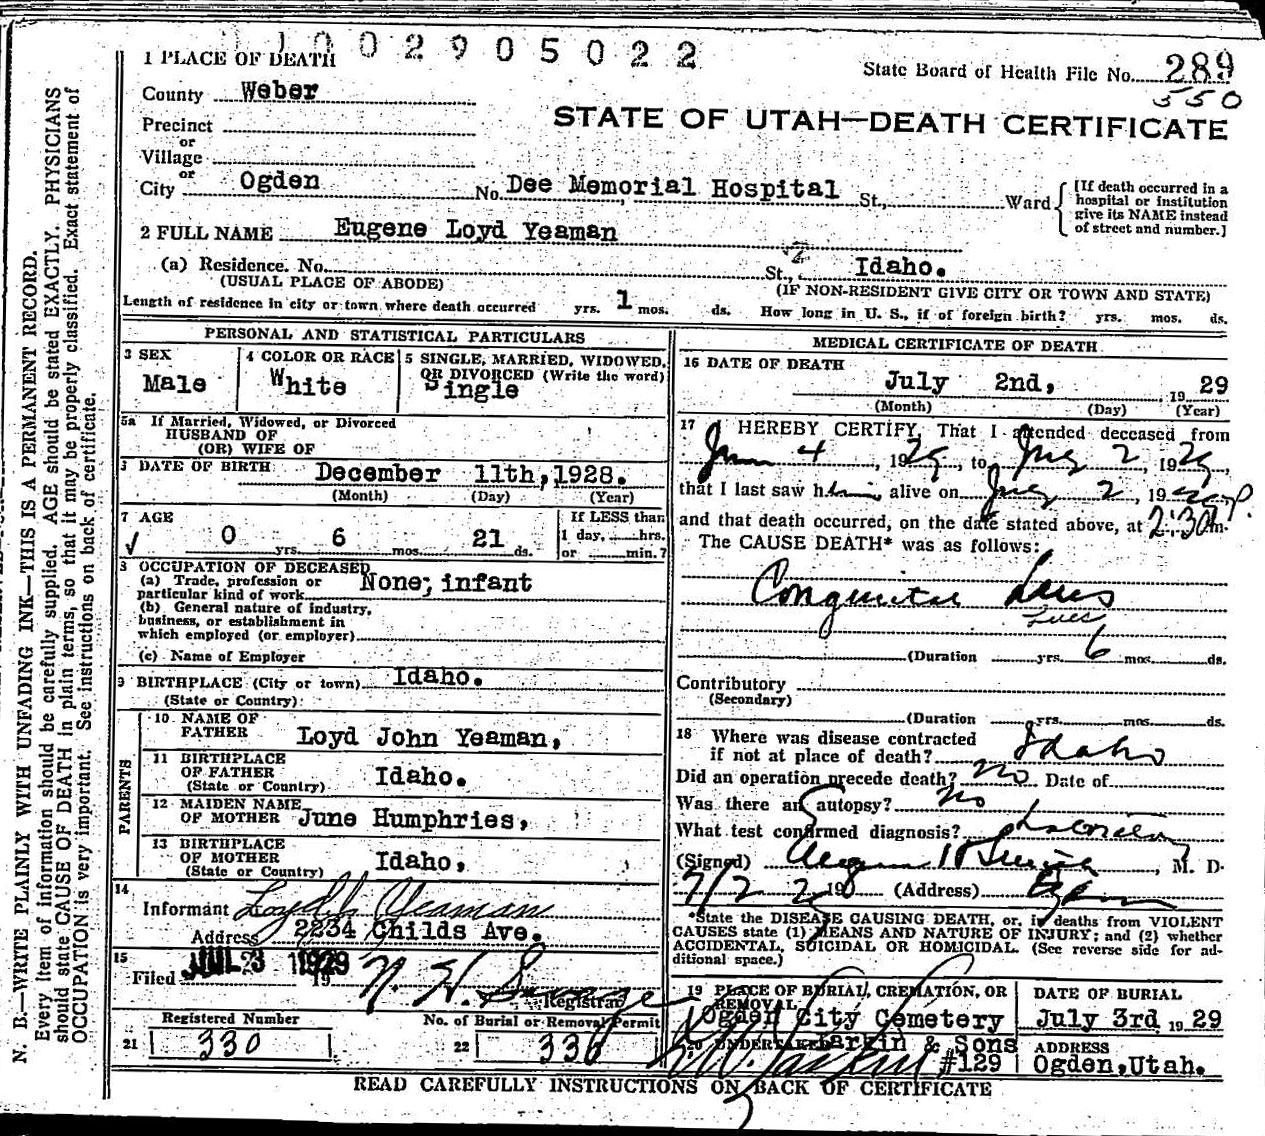 1002905022
1 PLACE OF DEATH
State Board of Health File No. 289
550
County Weber
STATE OF UTAH—DEATH CERTIFICATE
Precinct
or
Village
or
City Ogden No. Dee Memorial Hospital St., Ward
[If death occurred in a
hospital or institution
give its NAME instead
of street and number.]
2 FULL NAME Eugene Loyd Yeaman
(a) Residence. No. St., Idaho.
(USUAL PLACE OF ABODE) (IF NON-RESIDENT GIVE CITY OR TOWN AND STATE)
Length of residence in city or town where death occurred yrs. 1 mos. ds. How long in U. S., if of foreign birth? yrs. mos. ds.
PERSONAL AND STATISTICAL PARTICULARS
3 SEX
Male
4 COLOR OR RACE
White
5 SINGLE, MARRIED, WIDOWED,
OR DIVORCED (Write the word)
Single
5a If Married, Widowed, or Divorced
HUSBAND OF
(OR) WIFE OF
DATE OF BIRTH December 11th, 1928.
(Month) (Day) (Year)
7 AGE
0 yrs. 6 mos. 21 ds.
If LESS than
1 day, hrs.
or min.?
OCCUPATION OF DECEASED
(a) Trade, profession or
particular kind of work None; infant
(b) General nature of industry,
business, or establishment in
which employed (or employer)
(c) Name of Employer
9 BIRTHPLACE (City or town) Idaho.
(State or Country)
PARENTS
10 NAME OF
FATHER Loyd John Yeaman,
11 BIRTHPLACE
OF FATHER Idaho.
(State or Country)
12 MAIDEN NAME
OF MOTHER June Humphries,
13 BIRTHPLACE
OF MOTHER Idaho,
(State or Country)
14
Informant Loyd J Yeaman
Address 2234 Childs Ave.
15
Filed JUL 3 1929 19
N. H. Savage Registrar
Registered Number
21 330
No. of Burial or Removal Permit
22 330
MEDICAL CERTIFICATE OF DEATH
16 DATE OF DEATH
July 2nd, 1929
(Month) (Day) (Year)
17 I HEREBY CERTIFY, That I attended deceased from
June 4, 1929, to July 2 1929,
that I last saw him alive on July 2, 1929
and that death occurred, on the date stated above, at 2:30 P.m.
The CAUSE DEATH* was as follows:
Congenital Lues
Lues
(Duration yrs. 6 mos. ds.
Contributory
(Secondary)
(Duration yrs. mos. ds.
18 Where was disease contracted
if not at place of death? Idaho
Did an operation precede death? No Date of
Was there an autopsy? No
What test confirmed diagnosis?
(Signed) M. D.
7/2 (Address) Ogden
*State the DISEASE CAUSING DEATH, or, in deaths from VIOLENT
CAUSES state (1) MEANS AND NATURE OF INJURY; and (2) whether
ACCIDENTAL, SUICIDAL OR HOMICIDAL. (See reverse side for ad-
ditional space.)
19 PLACE OF BURIAL, CREMATION, OR
REMOVAL
Ogden City Cemetery
DATE OF BURIAL
July 3rd 1929
20 UNDERTAKER Larkin & Sons
#129
ADDRESS
Ogden, Utah.
READ CAREFULLY INSTRUCTIONS ON BACK OF CERTIFICATE
N. B.—WRITE PLAINLY WITH UNFADING INK—THIS IS A PERMANENT RECORD.
Every item of information should be carefully supplied. AGE should be stated EXACTLY. PHYSICIANS
should state CAUSE OF DEATH in plain terms, so that it may be properly classified. Exact statement of
OCCUPATION is very important. See instructions on back of certificate.